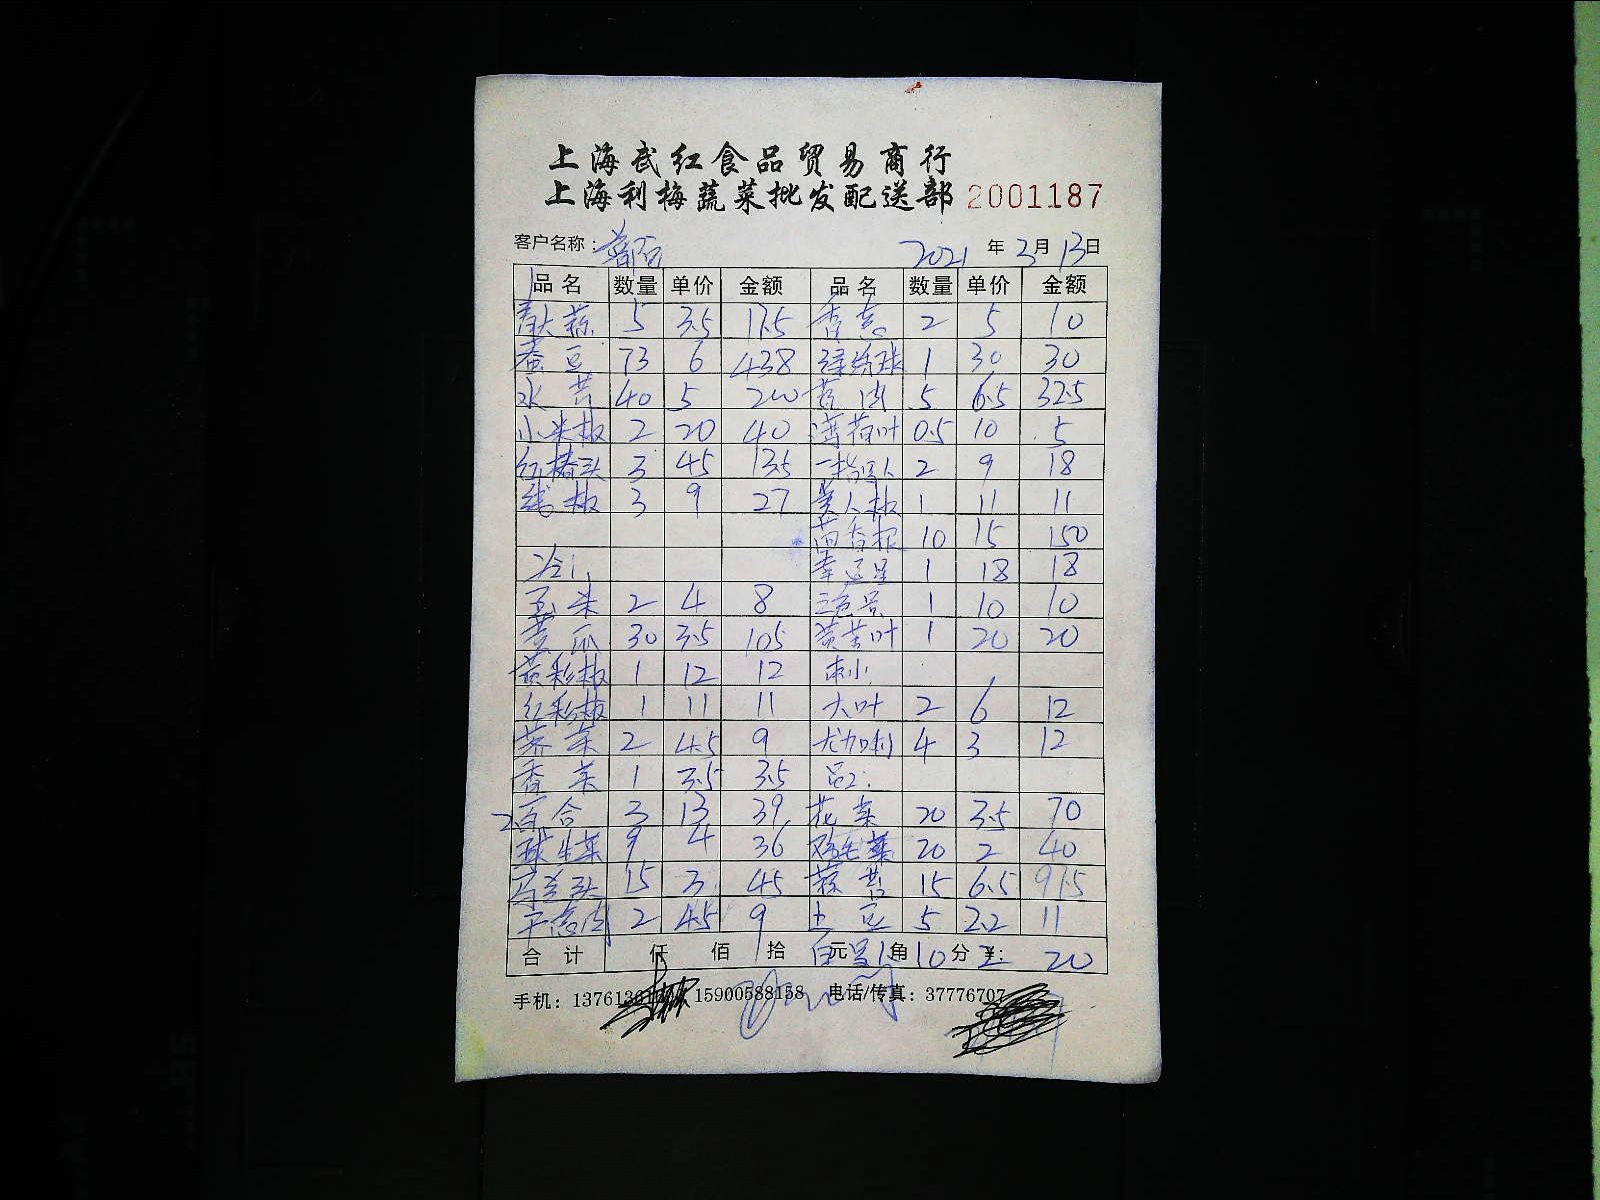 上海武红食品贸易商行
上海利梅蔬菜批发配送部 2001187
客户名称: 2021 年 3 月 13 日
品名 数量 单价 金额 品名 数量 单价 金额
青大蒜 5 3.5 17.5 香葱 2 5 10
蚕豆 73 6 438 绿绣球 1 30 30
水芹 40 5 200 5 6.5 32.5
小米椒 2 20 40 薄荷叶 0.5 10 5
红椿头 3 45 135 2 9 18
线椒 3 9 27 美人椒 1 11 11
茴香根 10 15 150
冷1: 幸运星 1 18 18
玉米 2 4 8 三色堇 1 10 10
黄瓜 30 3.5 105 黄芽叶 1 20 20
黄彩椒 1 12 12
红彩椒 1 11 11 大叶 2 6 12
荠菜 2 4.5 9 尤加利 4 3 12
香菜 1 3.5 3.5 品2:
百合 3 13 39 花菜 20 3.5 70
球生菜 9 4 36 鸡毛菜 20 2 40
马兰头 15 3 45 蒜苔 15 6.5 97.5
干葱肉 2 4.5 9 土豆 5 2.2 11
合计 仟 佰 拾 元 角 10 分 ¥: 2 20
手机: 1376136 15900588158 电话/传真: 37776707